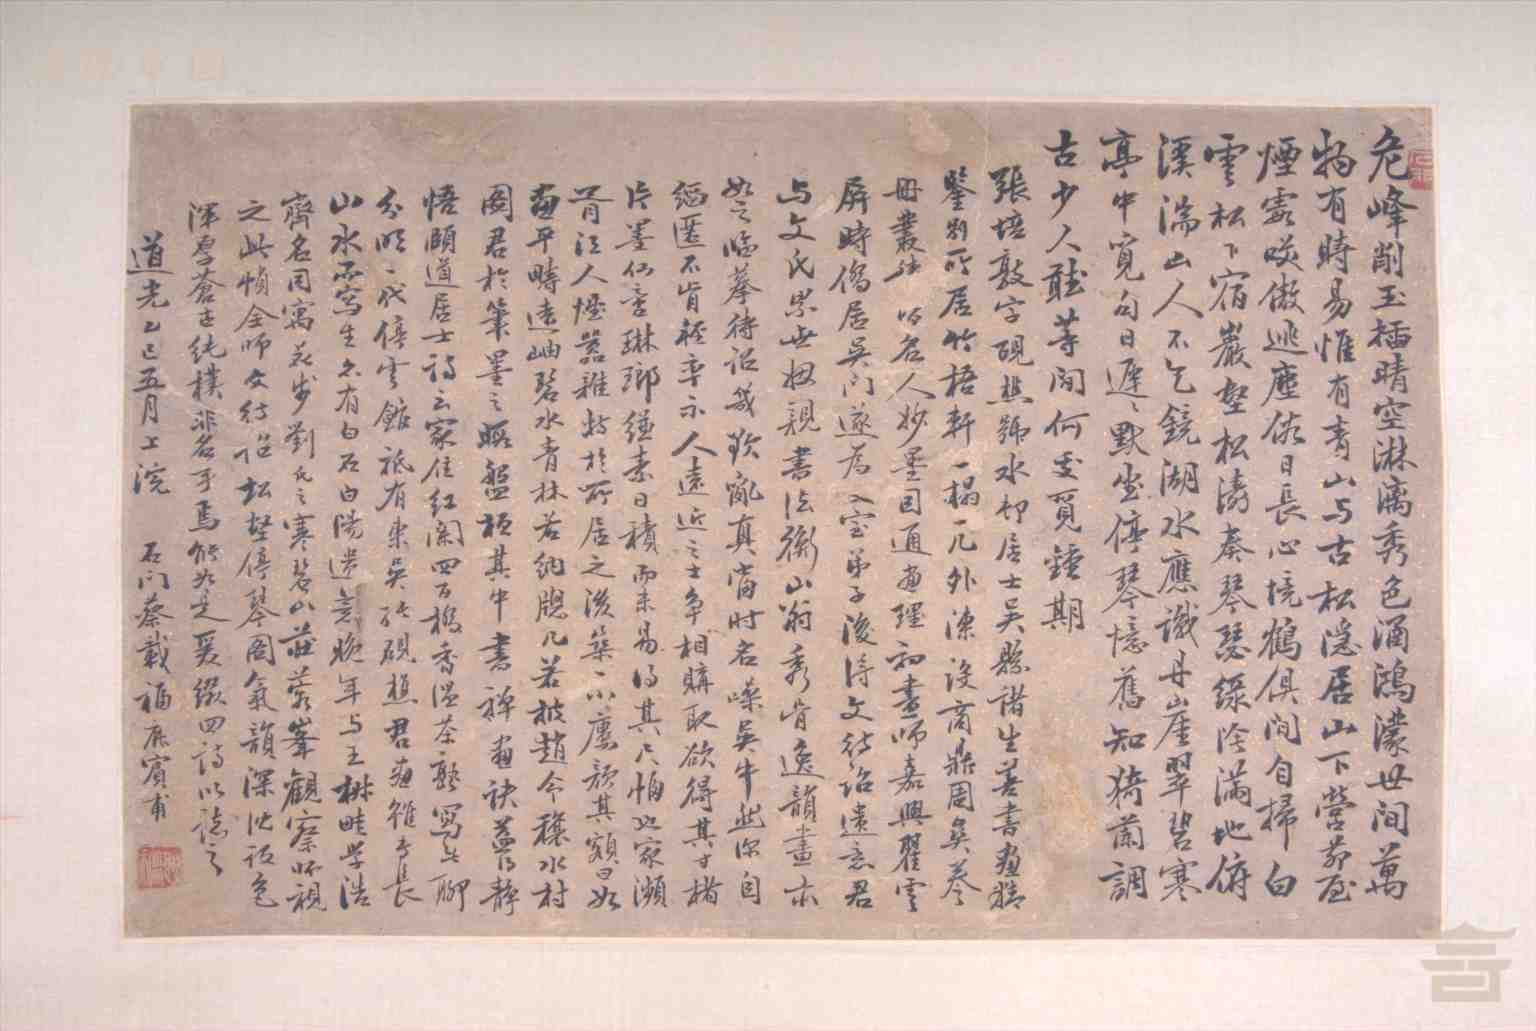 危峰削玉插晴空淋漓秀色涵鴻濛世間萬
物有時易惟有青山与古松隱居山下營茆屋
煙霞笑傲逃塵俗日長心境鶴俱閒自掃白
雲松下宿巖壑松濤奏琴瑟綠陰滿地俯
溪湍山人不乞鏡湖水應識丹崖翠碧寒
亭中覓句日遲遲默坐停琴憶舊知猗蘭調
古少人聽等閒何處覓鍾期
張培敦字硯樵號水邨居士吳縣諸生善書畫精
鑒別所居竹梧軒一榻一几外陳設商鼎周彝
冊叢帖以名人妙墨因通畫理初畫師嘉興瞿雲
屏時僑居吳門遂為入室弟子後得文待詔遺意君
与文氏累世姻親書法衡山翁秀骨逸韻畫亦
如之臨摹待詔幾欲亂真當時名噪吳中然深自
縕匿不肯輕平示人遠近之士爭相購取欲得其寸楮
片墨仙壺琳瑯縑素日積而未易得其尺幅也家瀕
胥江人煙囂雜故於所居之後築小廬顏其額曰如
畫平疇遠岫碧水青林若納牕几若披趙令穰水村
圖君於筆墨之暇盤桓其中書禪畫訣藉得靜
悟頤道居士詩云家住紅闌四百橋香溫茶熟寫無聊
分明一代停雲館祗有朱吳張硯樵君畫雖專長
山水而寫生亦有白石白陽遺意晚年与王椒畦学浩
齊名同寓花步劉氏之寒碧山莊蓉峯觀察怀視
之此幀全師文待詔松壑停琴圖氣韻深沈設色
渾厚蒼古純樸非名手焉能如是爰綴四詩以誌之
道光乙巳五月上浣 石門蔡載福鹿賓甫